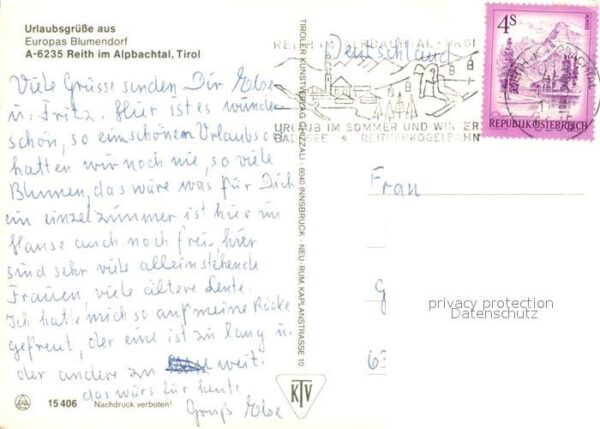 Urlaubsgrüße aus
Europas Blumendorf
A-6235 Reith im Alpbachtal, Tirol
Viele Grüsse senden Dir Else
u. Fritz. Hier ist es wunder
schön, so ein schönen Urlaubso
hatten wir noch nie, so viele
Blumen, das wäre was für Dich
ein einzelzimmer ist hier im
Hause auch noch frei, hier
sind sehr viele alleinstehende
Frauen, viele ältere Leute.
Ich hatte mich so auf meine Röcke
gefreut, der eine ist zu lang u.
der andere zu weit.
das wärs für heute
Gruß Else
15 406 Nachdruck verboten!
TIROLER KUNSTVERLAG CHIZZALI · 6040 INNSBRUCK - NEU-RUM, KAPLANSTRASSE 10
KTV
REITH IM ALPBACHTAL-TIROL
Deutschland
URLAUB IM SOMMER UND WINTER
BADESEE * REITHERKOGELBAHN
4S
REPUBLIK ÖSTERREICH
Frau
G
63
privacy protection
Datenschutz